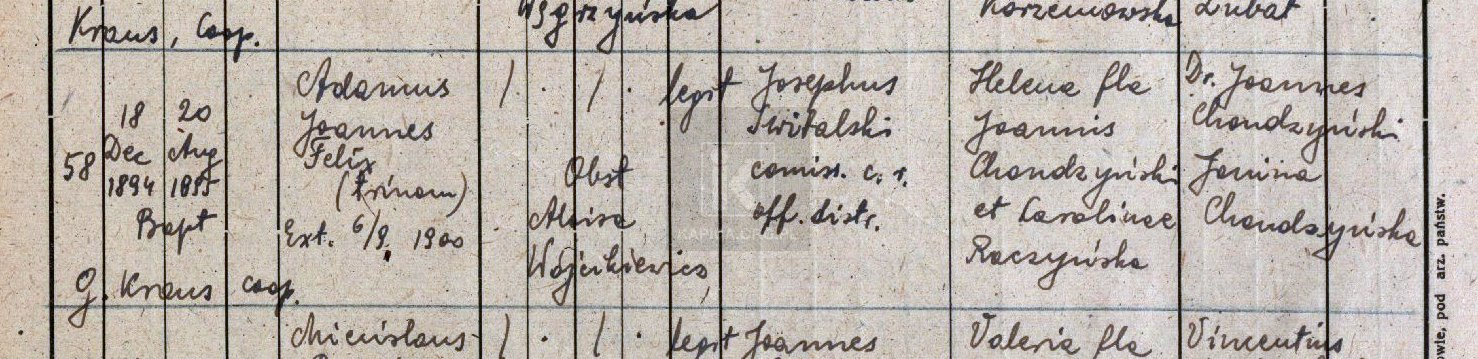 Węgrzyńska Korzeniowska Dubat
Kraus, Coop.
58
18 20
Dec Aug
1894 1885
Bapt
G. Kraus coop.
Adamus
Joannes
Felix
(trinom)
Ext. 6/9. 1900
/ . / .
Obst
Aloisa
Wójcikiewicz
legit
Josephus
Switalski
comiss. c. r.
off. distr.
Helena fla
Joannis
Chondzyński
et Carolinae
Raczyńska
Dr. Joannes
Chondzyński
Janina
Chondzyńska
Miecislaus / . / . legit Joannes Valeria fla Vincentius
owie, pod arz. państw.